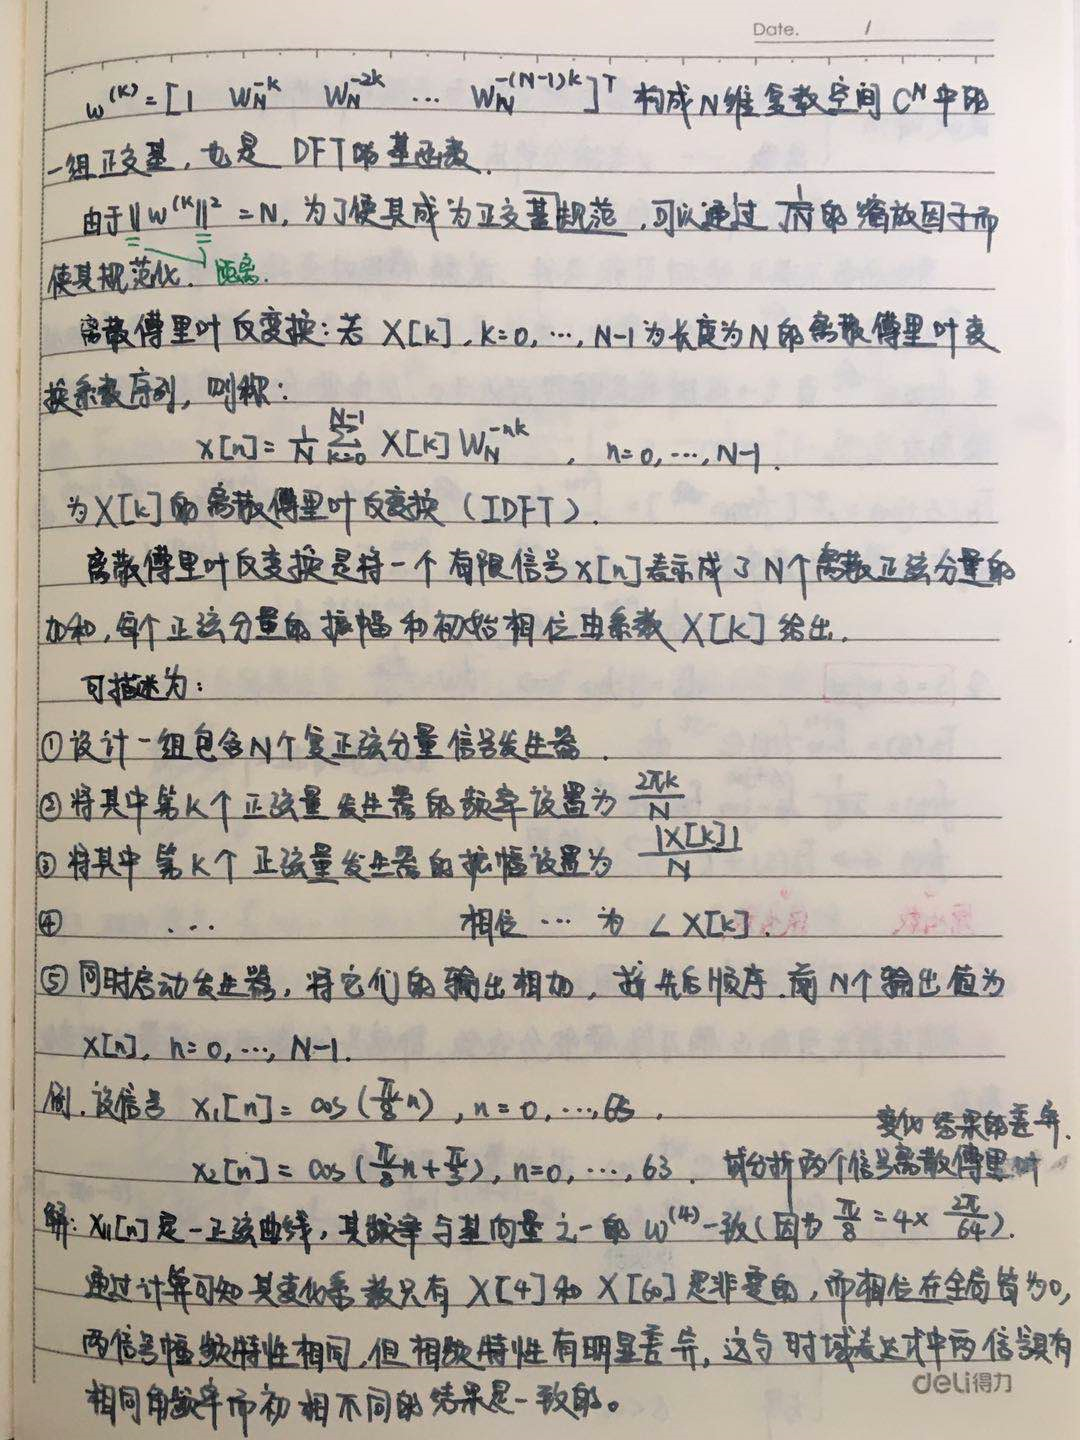 Date. /
w^(k) = [1 W_N^-k W_N^-2k ... W_N^-(N-1)k]^T 构成N维复数空间 C^N中的
一组正交基,也是 DFT的基函数.
由于‖w^(k)‖² = N, 为了使其成为正交基规范,可以通过 1/√N的缩放因子而
使其规范化. 距离.
离散傅里叶反变换:若 X[k], k=0, ..., N-1为长度为N的离散傅里叶变
换系数序列,则称:
x[n] = 1/N ∑_{k=0}^{N-1} X[k] W_N^-nk , n=0, ..., N-1.
为X[k]的离散傅里叶反变换(IDFT).
离散傅里叶反变换是将一个有限信号x[n]表示成了N个离散正弦分量的
加和,每个正弦分量的振幅和初始相位由系数X[k]给出.
可描述为:
①设计一组包含N个复正弦分量信号发生器.
②将其中第K个正弦量发生器的频率设置为 2πk/N
③将其中第K个正弦量发生器的振幅设置为 |X[k]|/N
④ ... 相位 ... 为 ∠X[k].
⑤同时启动发生器,将它们的输出相加,按先后顺序.前N个输出值为
x[n], n=0, ..., N-1.
例.设信号 x₁[n] = cos(π/8 n), n=0, ..., 63.
变化结果的差异.
x₂[n] = cos(π/8 n + π/3), n=0, ..., 63. 试分析两个信号离散傅里叶
解: x₁[n]是一正弦曲线,其频率与基向量之一的 w^(4)一致(因为 π/8 = 4× 2π/64).
通过计算可知其变化系数只有 X[4]和 X[60]是非零的,而相位在全局皆为0,
两信号幅频特性相同,但相频特性有明显差异,这与时域表达式中两信号具有
相同角频率而初相不同的结果是一致的。
deli得力